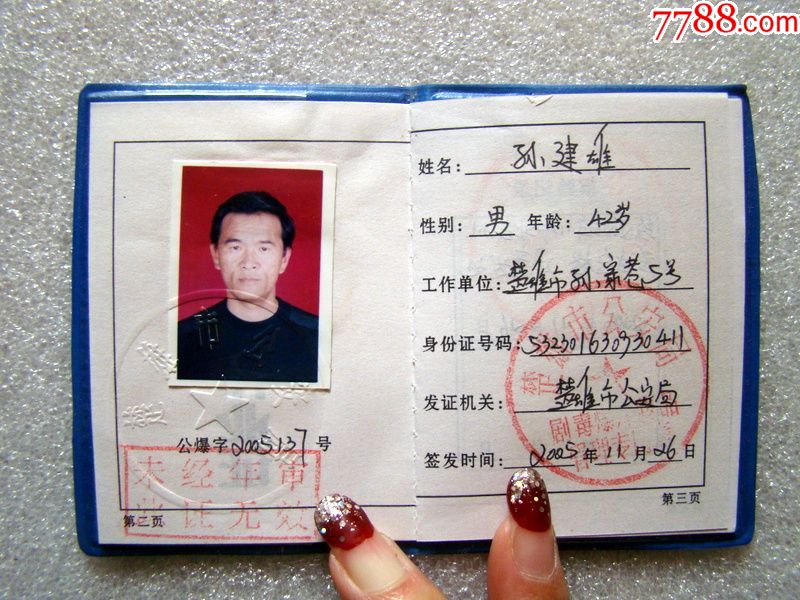 7788.com
姓名：孙建雄
性别：男 年龄：42岁
工作单位：楚雄市孙家巷5号
身份证号码：532301630930411
发证机关：楚雄市公安局
签发时间：2005年11月26日
第三页
楚雄市公安局
公爆字2005137号
未经年审
此证无效
第二页